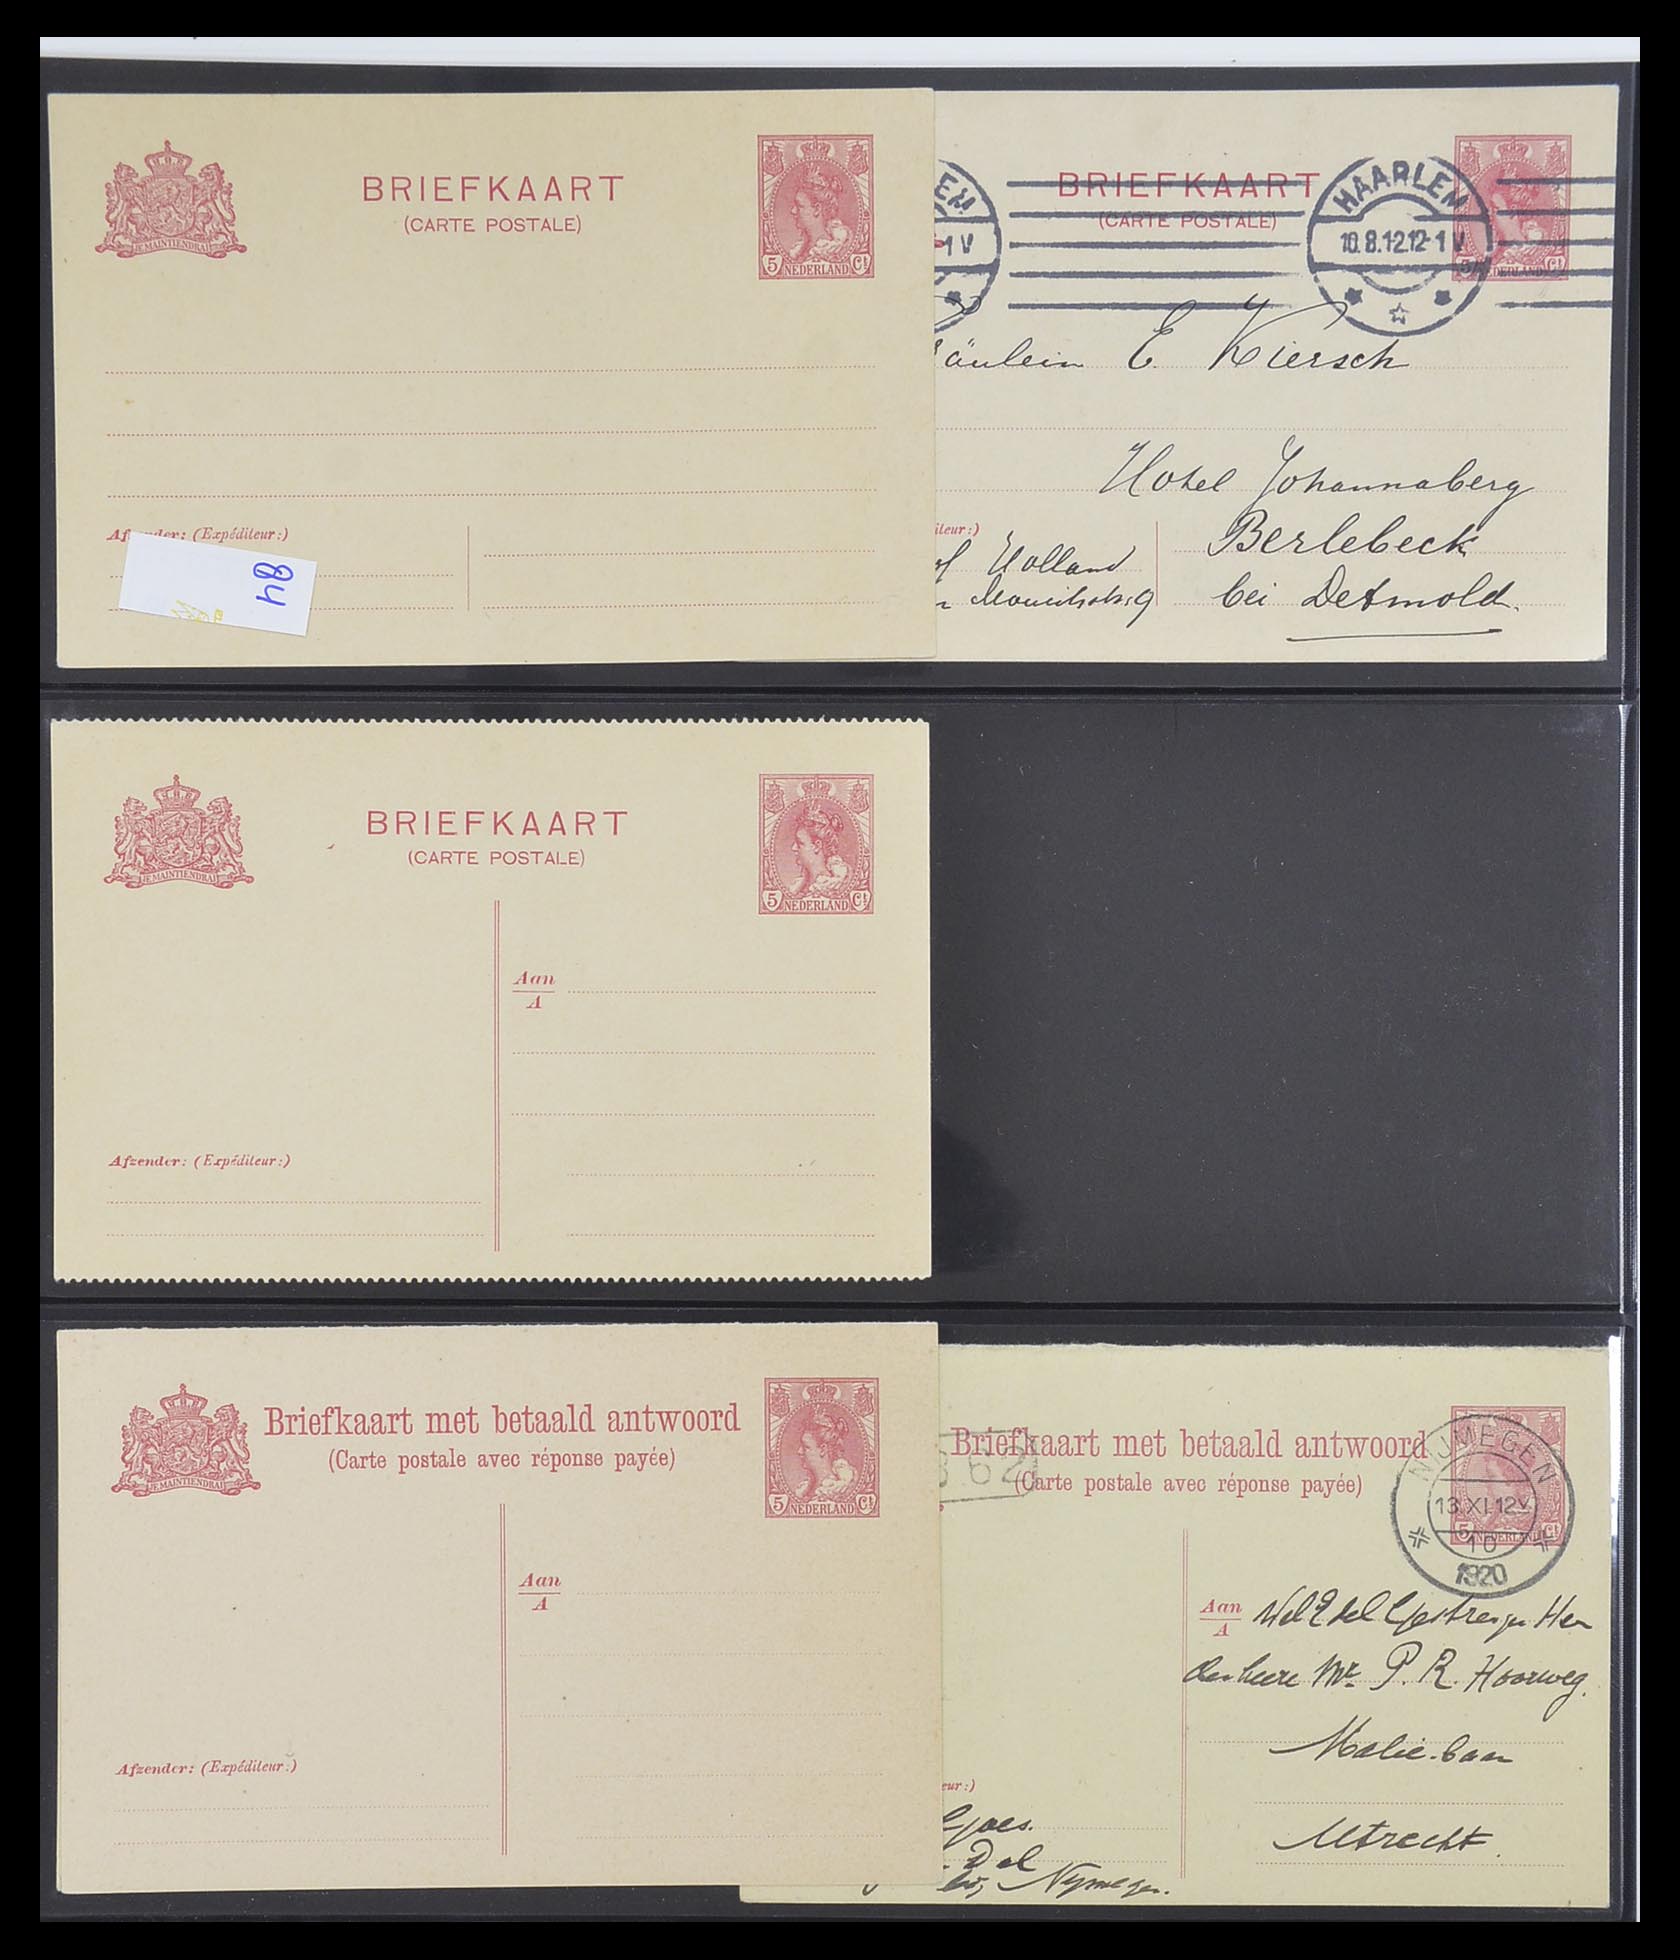 BRIEFKAART
(CARTE POSTALE)
JE MAINTIENDRAI
5 NEDERLAND Ct
Afzender: (Expéditeur:)
84
BRIEFKAART
(CARTE POSTALE)
HAARLEM
10.8.12.12-1 V
1 V
5 NEDERLAND Ct
äulein E. Kiersch
Hotel Johannaberg
Berlebeck
bei Detmold.
iteur:)
Holland
BRIEFKAART
(CARTE POSTALE)
JE MAINTIENDRAI
5 NEDERLAND Ct
Aan
A
Afzender: (Expéditeur:)
Briefkaart met betaald antwoord
(Carte postale avec réponse payée)
JE MAINTIENDRAI
5 NEDERLAND Ct
Aan
A
Afzender: (Expéditeur:)
Briefkaart met betaald antwoord
(Carte postale avec réponse payée)
62
NIJMEGEN
13 XI 12V
10
1920
5 NEDERLAND Ct
Aan
A
Wel Edel Gestrenge Heer
den heere Mr. P. R. Hoorweg.
Maliebaan
Utrecht.
eur:)
Goes.
Nymegen.